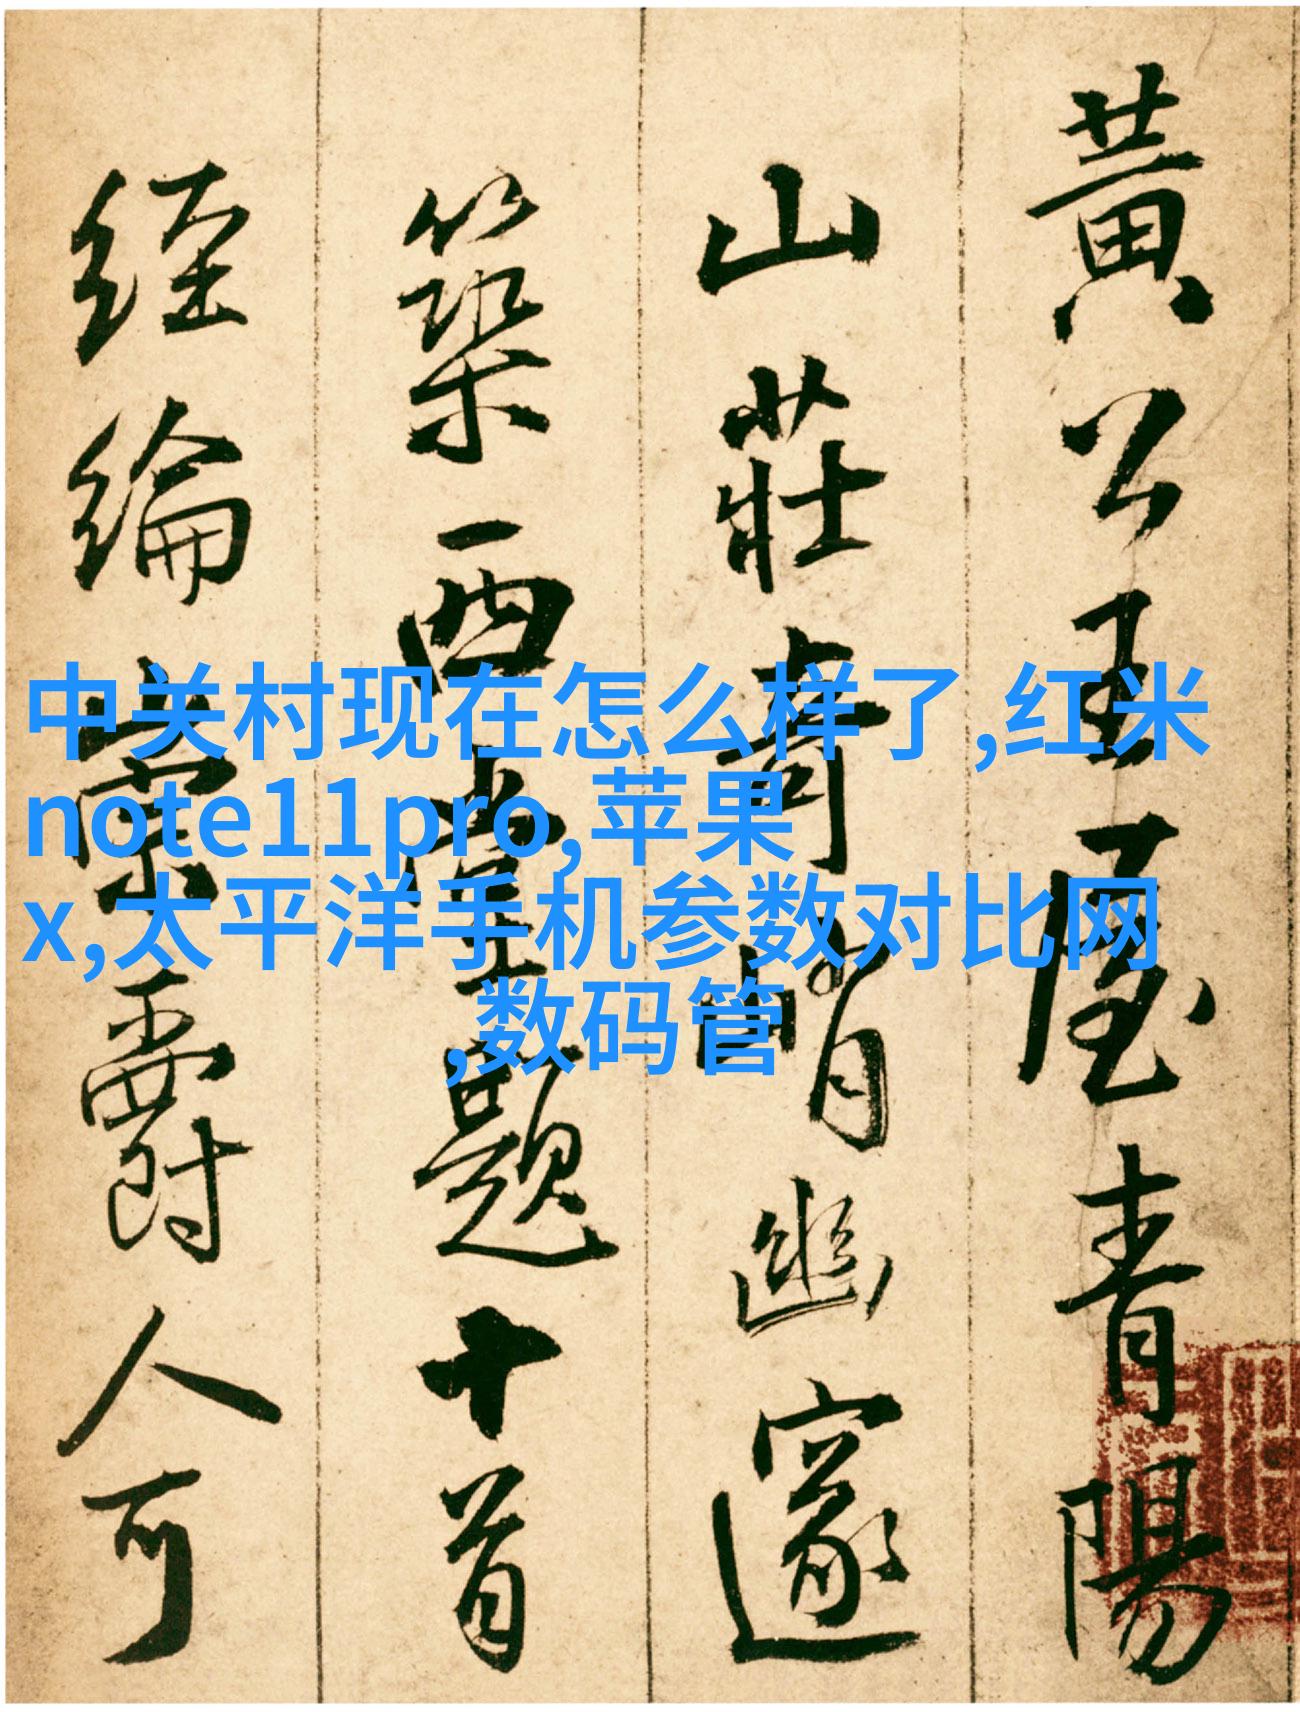 黄公王屋青陽
山莊奇峭幽邃
築西堂題十首
經綸蒙爵人可
中关村现在怎么样了,红米
note11pro,苹果
x,太平洋手机参数对比网
,数码管